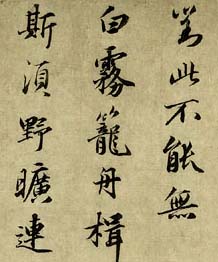 對此不能無
白霧籠舟楫
斯須野曠連